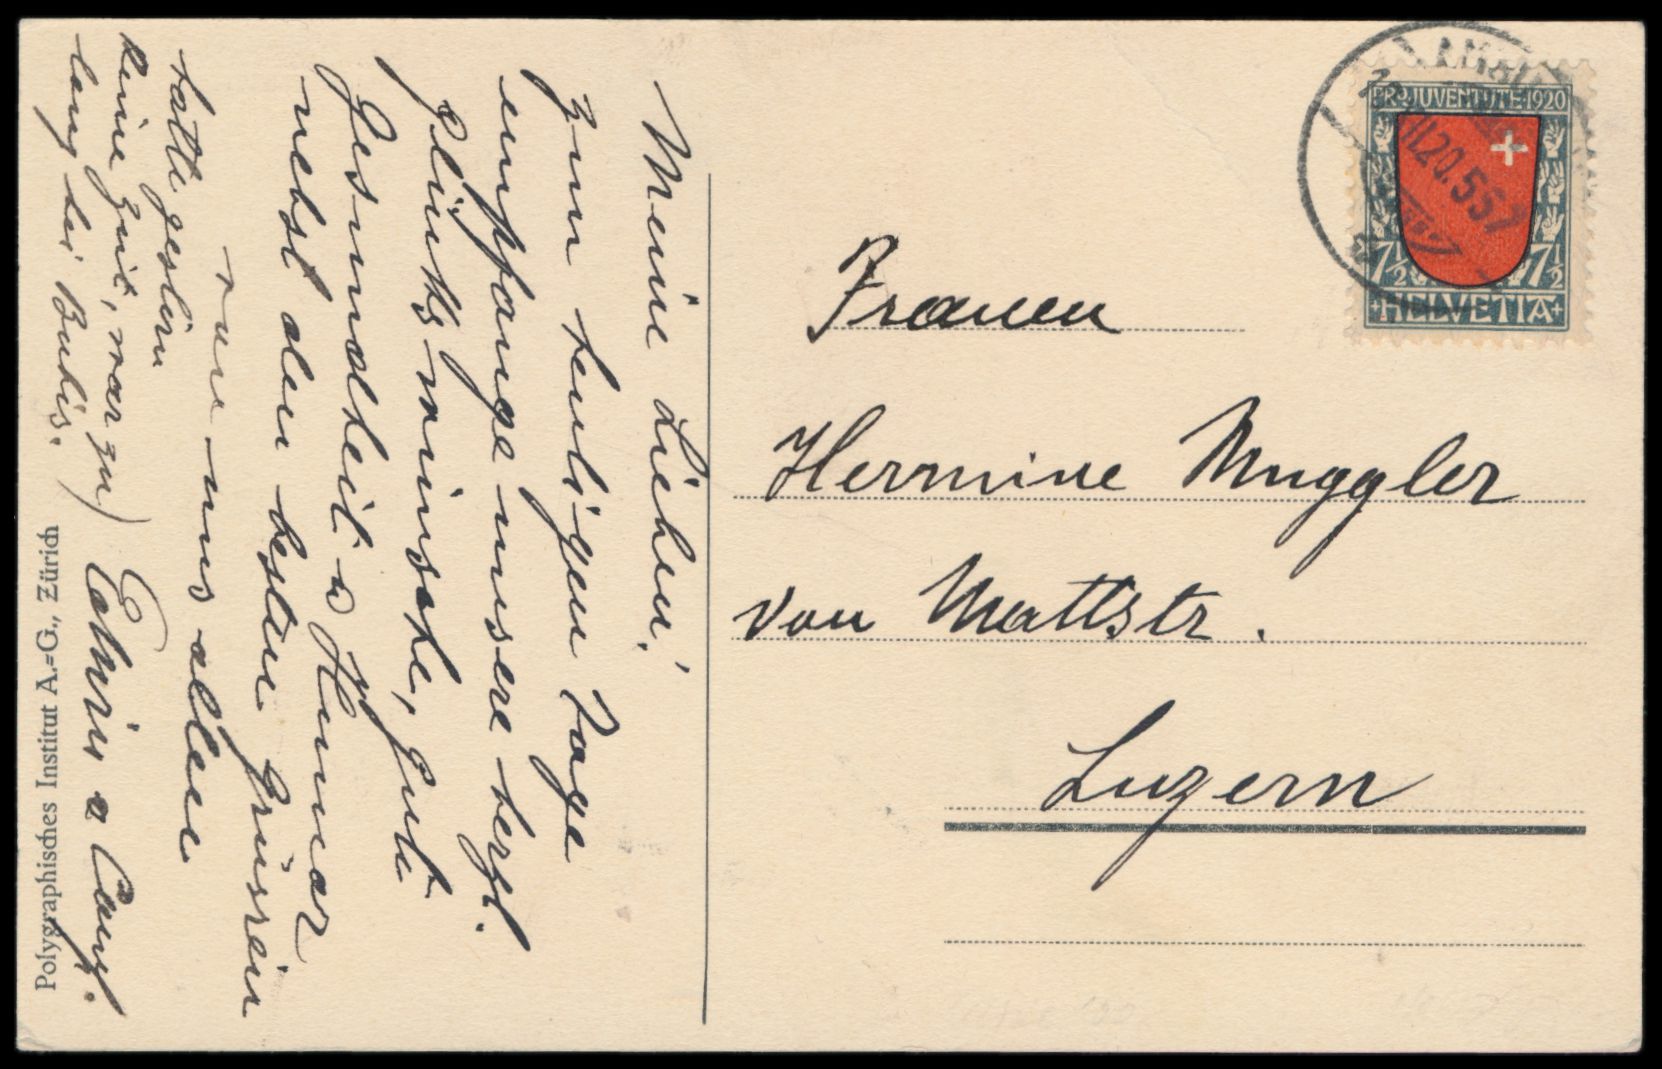 Meine Lieben!
Zum heutigen Tage
empfange unsere herzl.
Glückswünsche, gute
Gesundheit u Humor
nebst den besten Grüssen
von uns allen
hatte gestern
keine Zeit, war zu
lang bei Buchis.
Edwin u Camp.
Polygraphisches Institut A.=G., Zürich
PRO JUVENTUTE·1920
II.20.5
7½ 7½
HELVETIA
Frauen
Hermine Muggler
von Mattstr.
Luzern